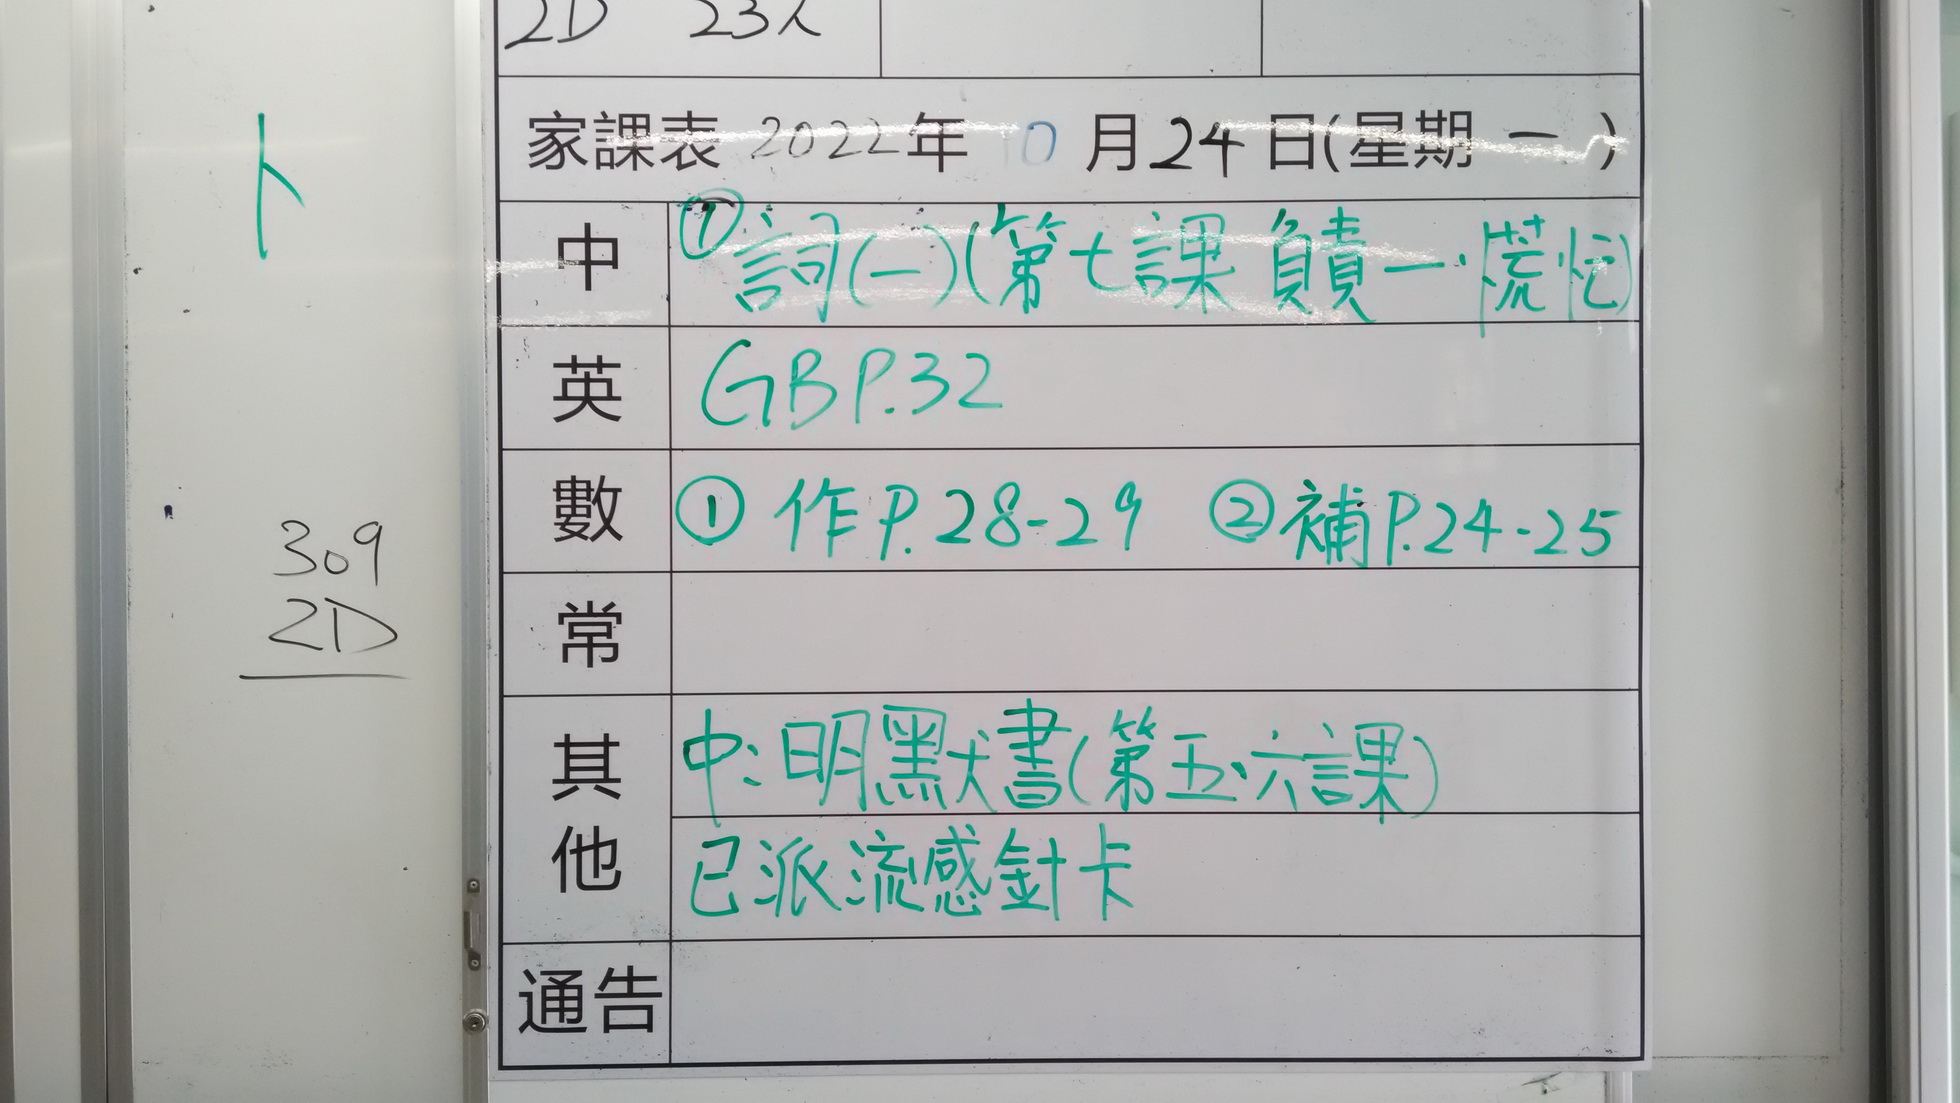 2D 23人
家課表 2022年 10 月 24 日(星期 一 )
中 ① 詞(一)(第七課 負責一·慌忙)
英 GB P.32
數 ① 作 P.28-29 ② 補 P.24-25
常
其他 中:明默書(第五、六課)
已派流感針卡
通告
卜
309
2D